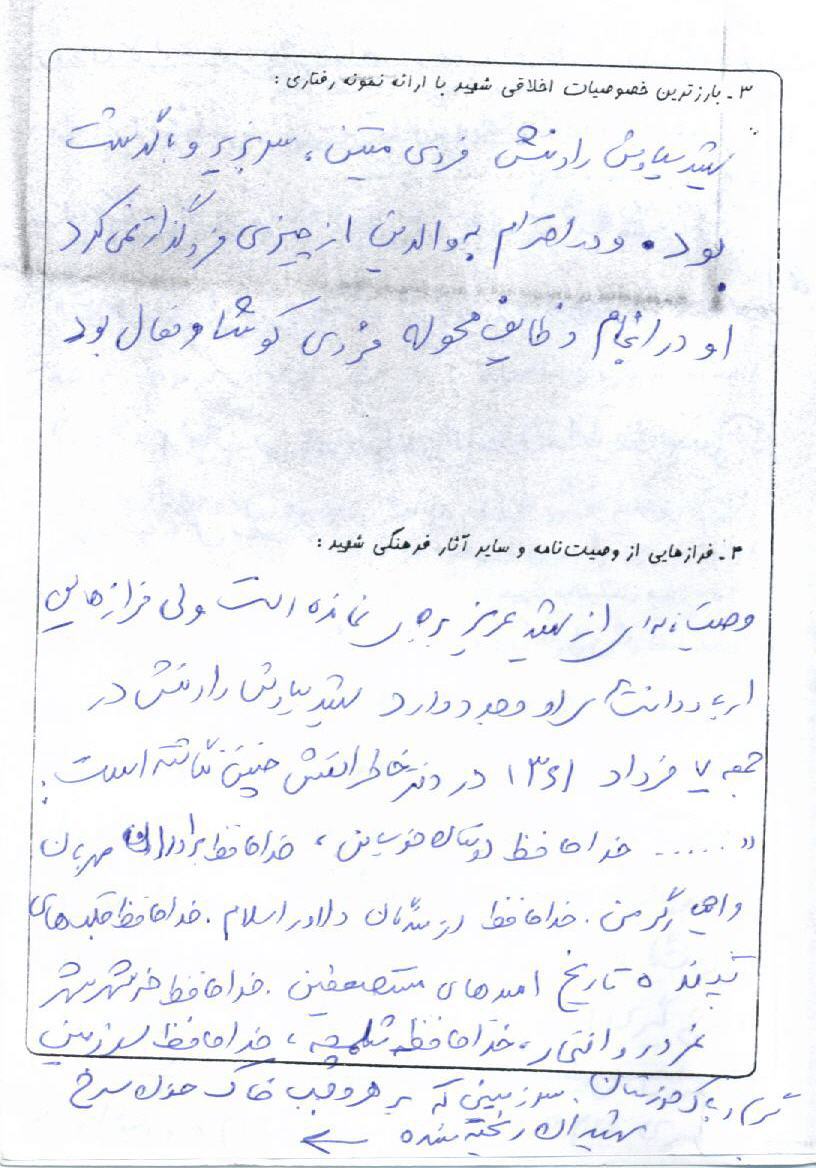 ۳ـ بارزترین خصوصیات اخلاقی شهید با ارائه نمونه رفتاری :
شهید سیاوش رادمنش فردی متین ، سربزیر و باگذشت
بود. و در احترام به والدین از چیزی فروگذار نمی کرد
او در انجام وظایف محوله فردی کوشا و فعال بود
۴ـ فرازهایی از وصیت‌نامه و سایر آثار فرهنگی شهید :
وصیتنامه ای از شهید عزیز بر جای نمانده است ولی فرازهایی
از یادداشتهای او وجود دارد شهید سیاوش رادمنش در
جمعه ۷ مرداد ۱۳۶۱ در دفتر خاطراتش چنین نگاشته است :
« ...... خداحافظ دوستان خوب من ، خداحافظ برادران مهربان
من . خداحافظ رزمندگان دلاور اسلام . خداحافظ قلب های
تپنده تاریخ امیدهای مستضعفین . خداحافظ خرمشهر شهر
غرور و افتخار ، خداحافظ شلمچه ، خداحافظ سرزمین
گرم و پاک خوزستان . سرزمینی که بر هر وجب خاکت خون سرخ
شهیدان ریخته شده ←